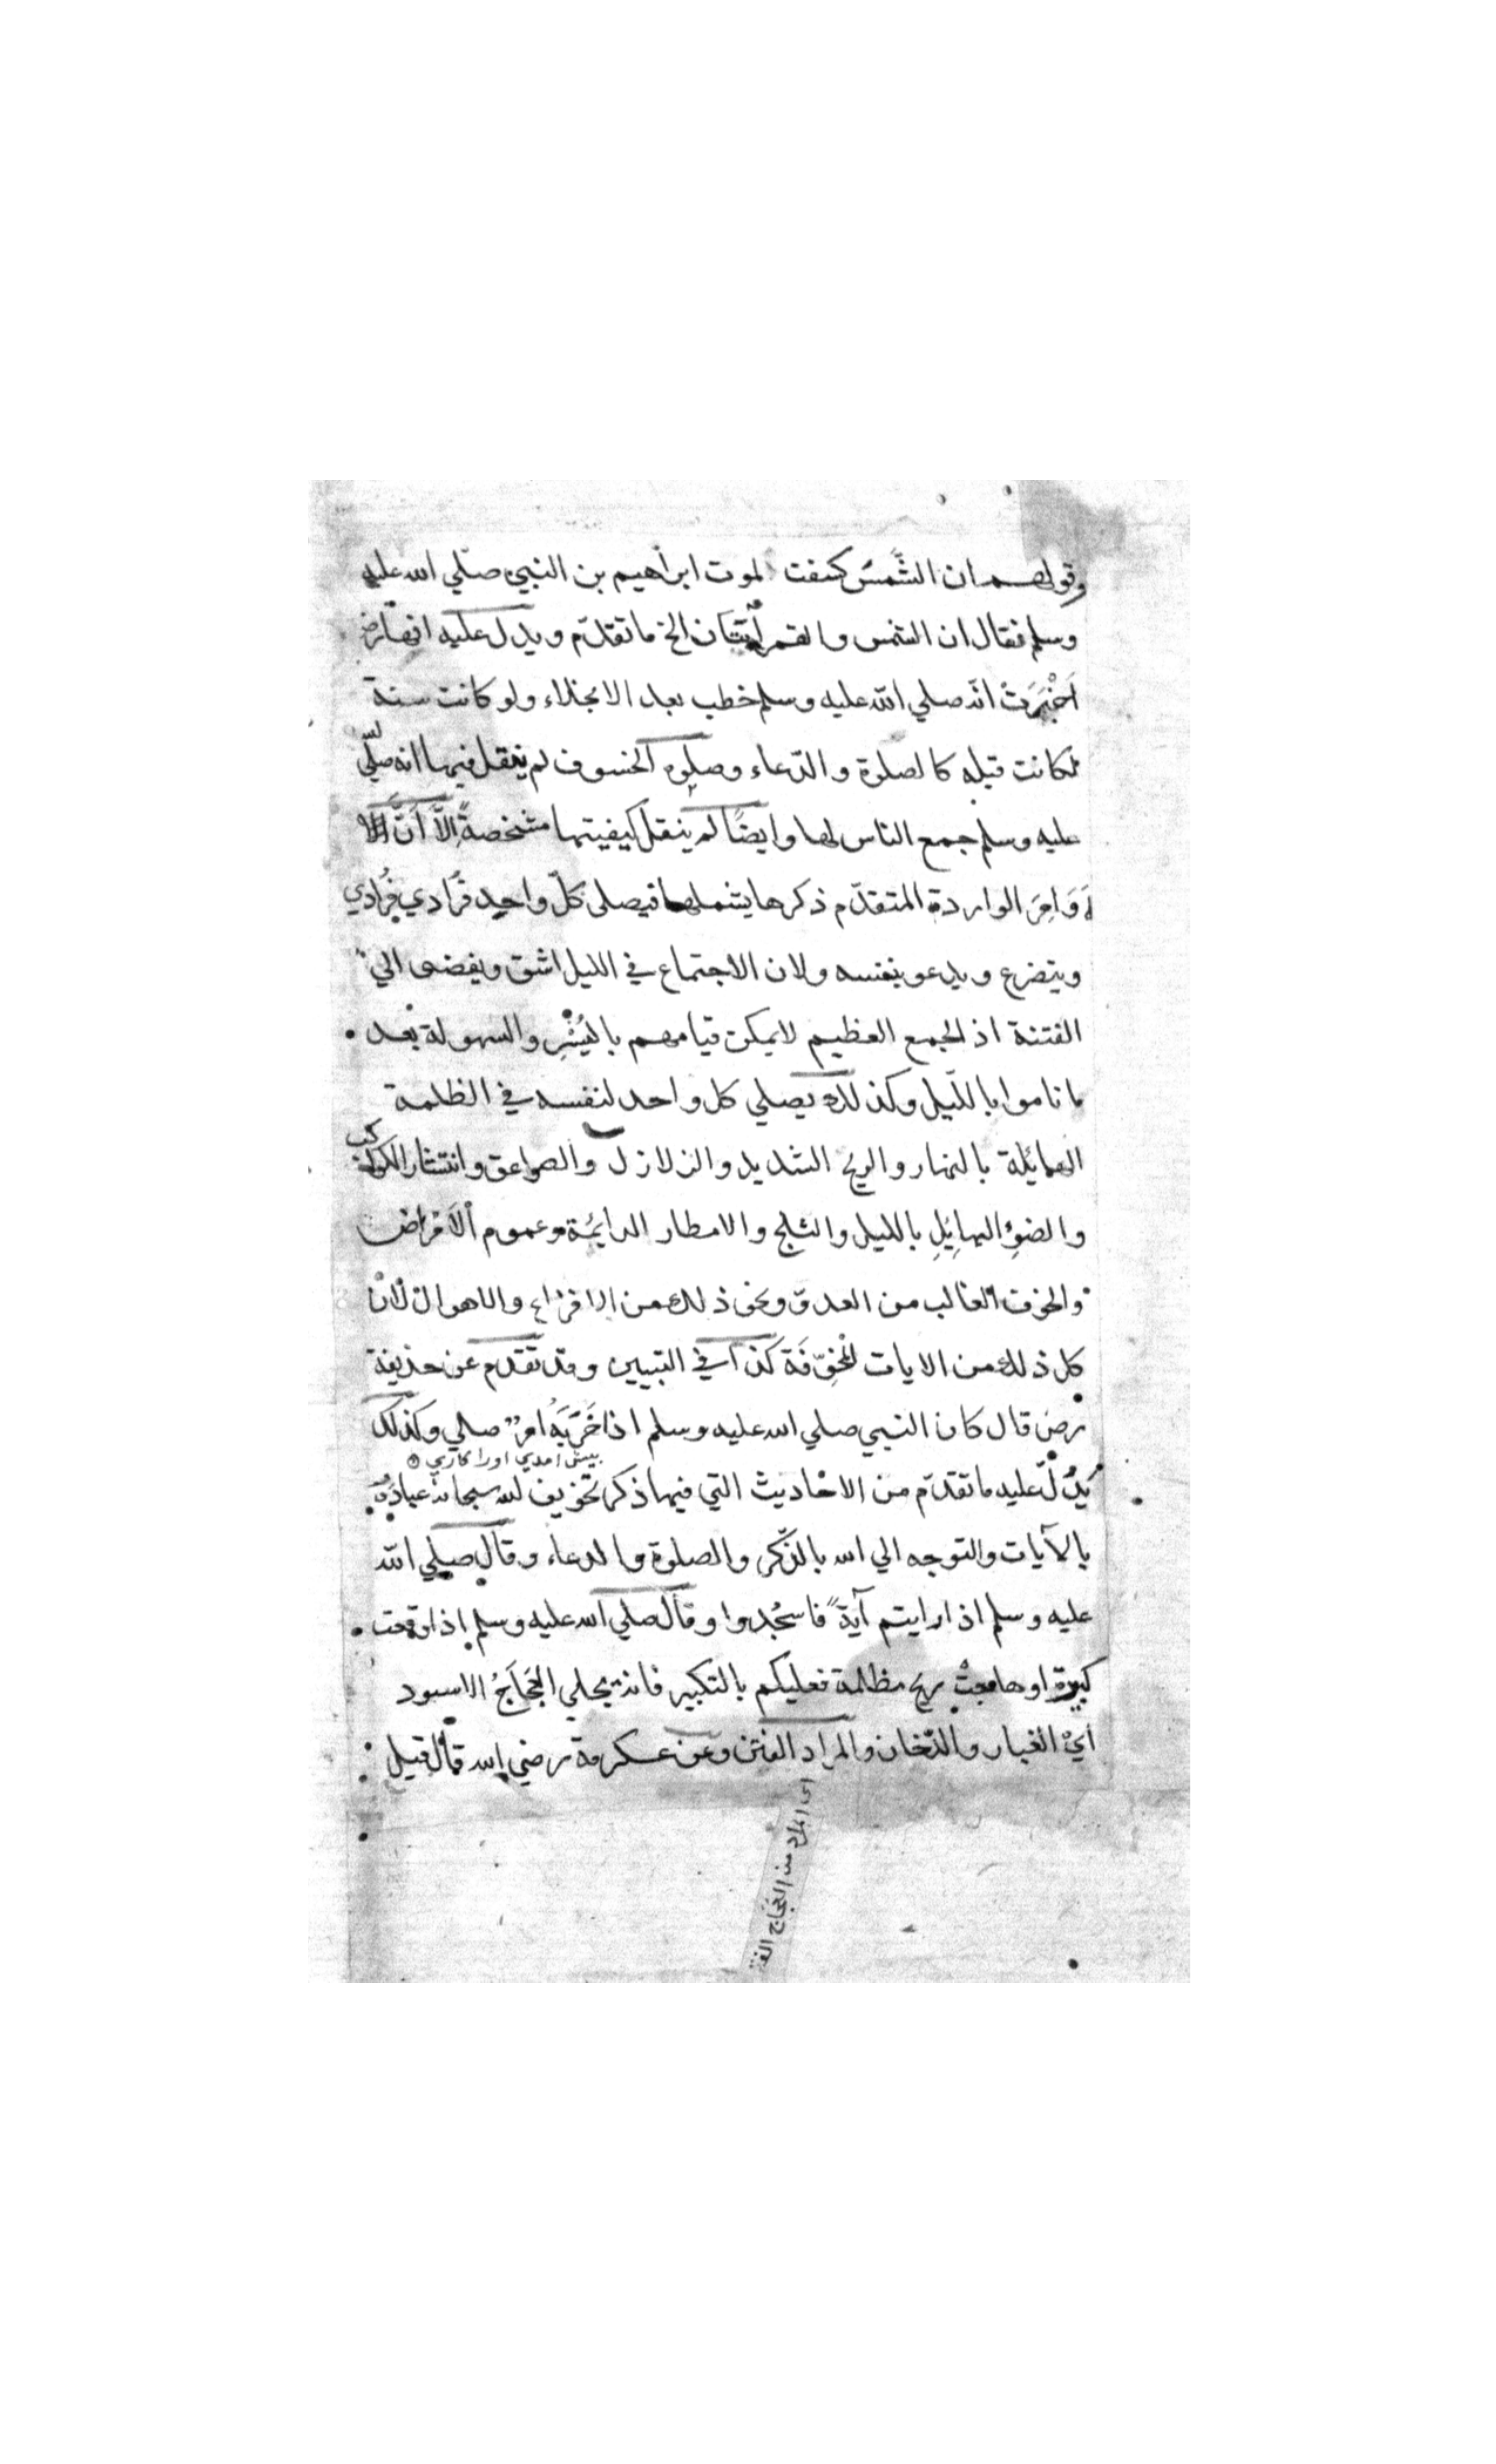 وقولهم ان الشَّمسَ كسفت لموت ابراهيم بن النبي صلّي الله عليه
وسلم فقال ان الشمس والقمر آيتان الخ ما تقدّم ويدل عليه انها رض
اَخْبَرَتْ انّه صلي الله عليه وسلم خطب بعد الانجلاء ولو كانت سنة
لكانت قبله كالصلوة والدّعاء وصلوة الخسوف لم ينقل فيها انه صلّي الله
عليه وسلم جمع الناس لها وايضًا لم ينقل كيفيتها مشخصةً اِلاَّ اَنَّ الا
َوَامِرَ الواردة المتقدّم ذكرها يشملها فيصلى كلّ واحد فُرادي فُرادي
ويتضرع ويدعو بنفسه ولان الاجتماع في الليل اشق ويفضى الي
الفتنة اذ الجمع العظيم لا يمكن قيامهم باليُسْرِ والسهولة بعد
ما ناموا بالليل وكذلك يصلي كل واحد لنفسه في الظلمة
الهائلة بالنهار والريح الشديد والزلازل والصواعق وانتشار الكواكب
والضوءِ الهائِلِ بالليل والثلج والامطار الدائمة وعموم الاَمراض
والخوف الغالب من العدوّ ونحو ذلك من الافزاع والاهوال لانّ
كل ذلك من الايات المُخَوِّفَة كذا في التبيين وقد تقدم عن حذيفة
رض قال كان النبي صلي الله عليه وسلم اذا حَزَبَهُ امرٌ صلي وكذلك
بيش امدي اورا كاري
يَدُلّ عليه ما تقدّم من الاحاديث التي فيها ذكر تخويف الله سبحانه عبادَهُ
بالآيات والتوجه الي الله بالذّكر والصلوة والدعاء وقال صلي الله
عليه وسلم اذا رايتم آيةً فاسجُدوا وقال صلي الله عليه وسلم اذا وقعت
كبيرة او هاجت ريح مظلمة فعليكم بالتكبير فانه يجلي العَجَاجُ الاسود
أيْ الغبار والدّخان والمراد الفتن وعن عكرمة رضي الله قال قيل
اى المراد من العَجَاج